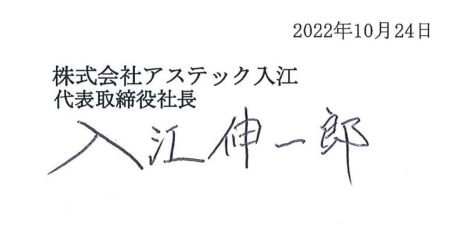 2022年10月24日
株式会社アステック入江
代表取締役社長
入江伸一郎